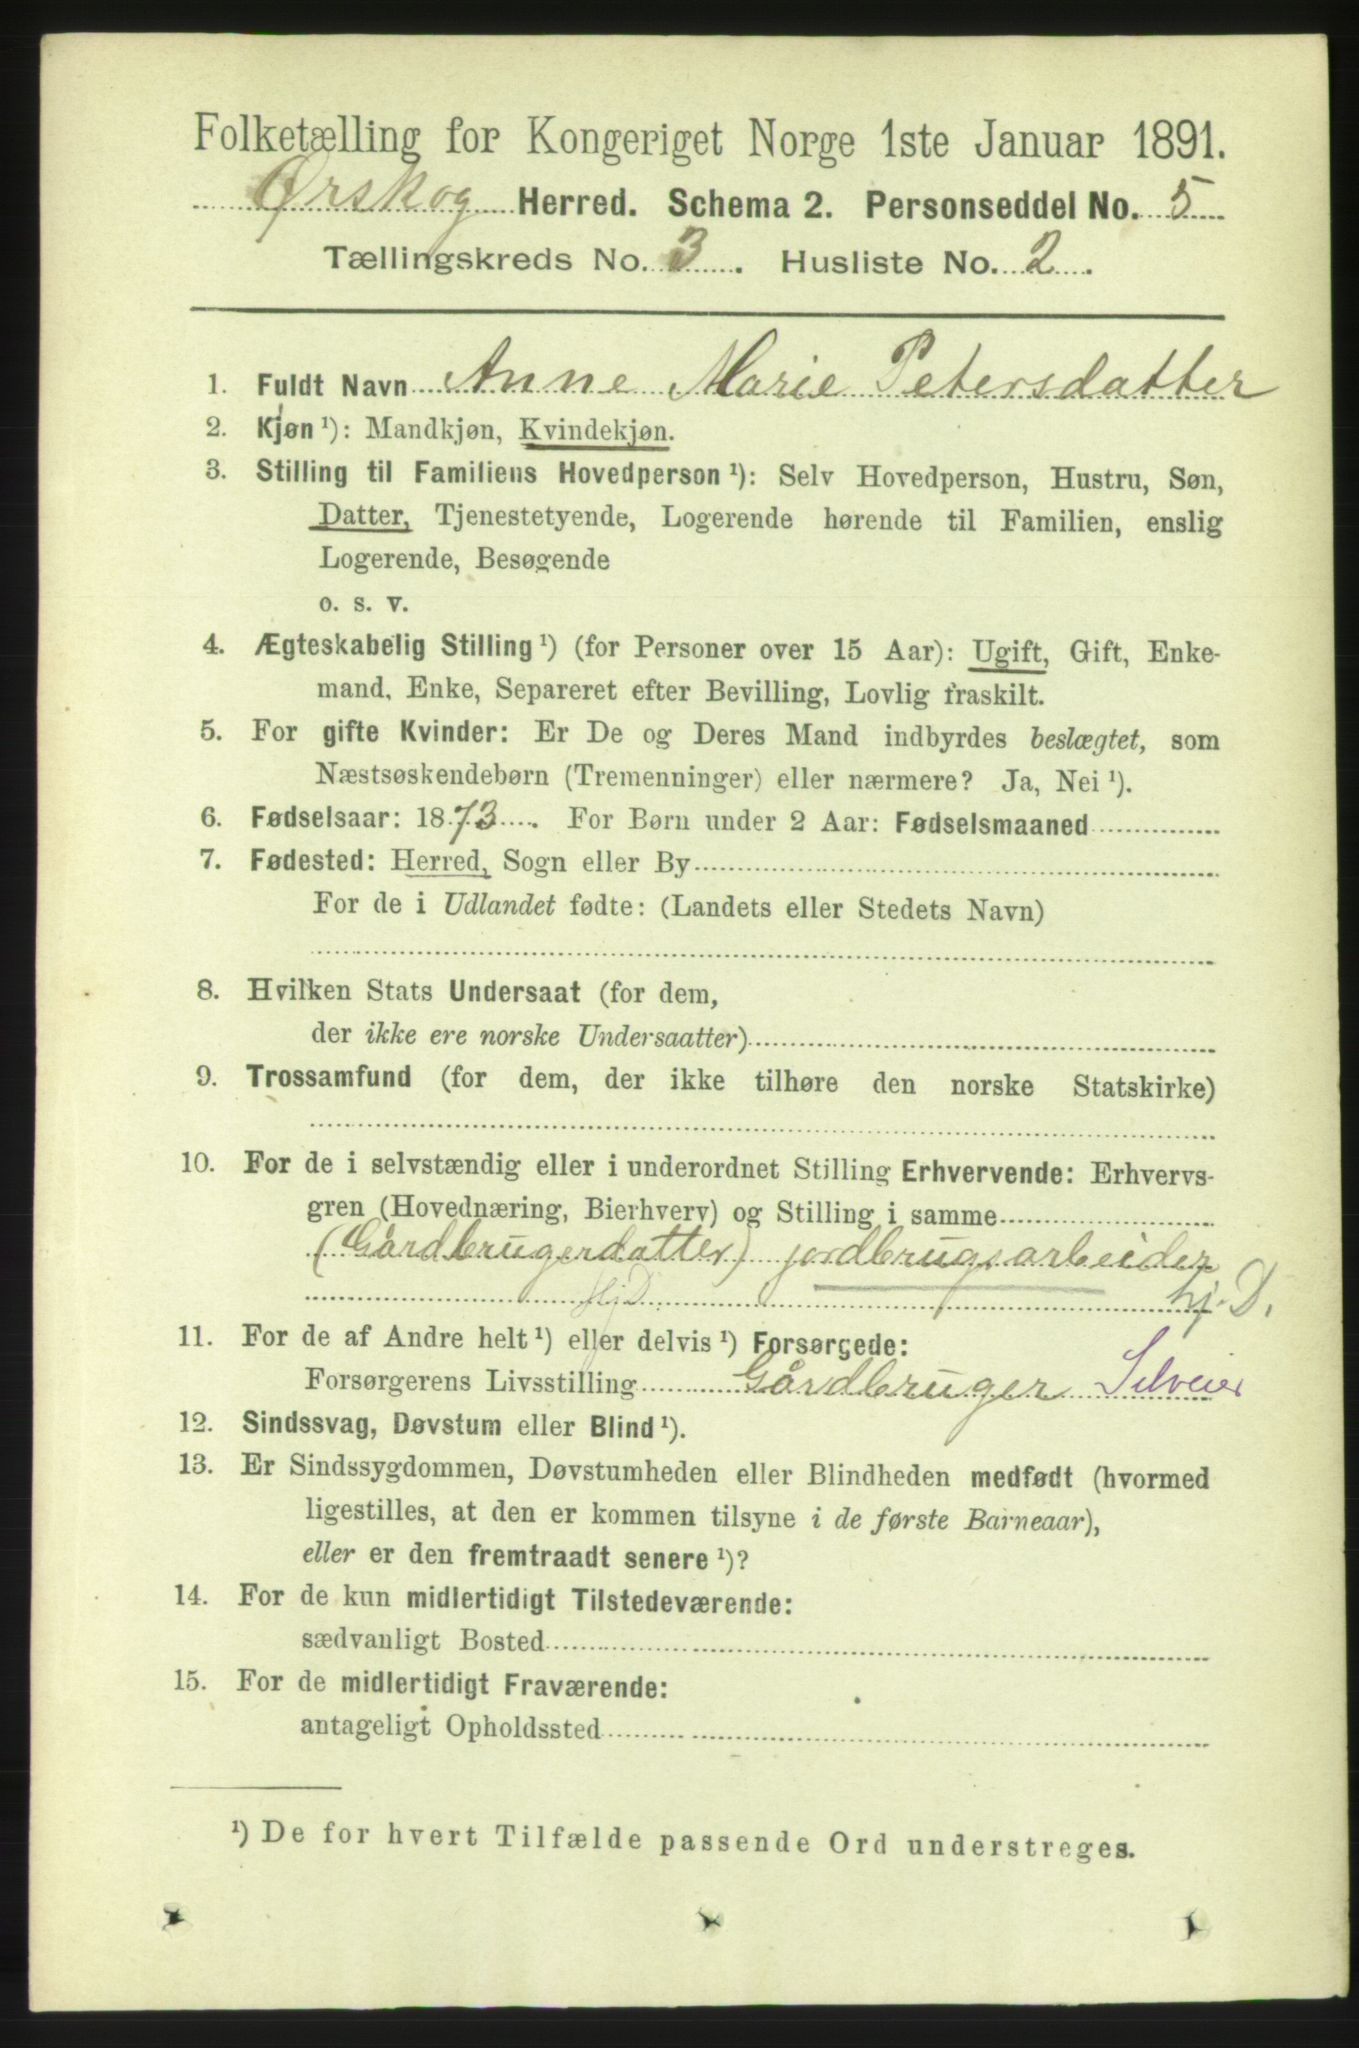 Folketælling for Kongeriget Norge 1ste Januar 1891.
Ørskog Herred. Schema 2. Personseddel No. 5
Tællingskreds No. 3. Husliste No. 2.
1. Fuldt Navn Anne Marie Petersdatter
2. Kjøn ¹): Mandkjøn, Kvindekjøn.
3. Stilling til Familiens Hovedperson ¹): Selv Hovedperson, Hustru, Søn,
Datter, Tjenestetyende, Logerende hørende til Familien, enslig
Logerende, Besøgende
o. s. v.
4. Ægteskabelig Stilling ¹) (for Personer over 15 Aar): Ugift, Gift, Enke-
mand, Enke, Separeret efter Bevilling, Lovlig fraskilt.
5. For gifte Kvinder: Er De og Deres Mand indbyrdes beslægtet, som
Næstsøskendebørn (Tremenninger) eller nærmere? Ja, Nei ¹).
6. Fødselsaar: 1873. For Børn under 2 Aar: Fødselsmaaned
7. Fødested: Herred, Sogn eller By
For de i Udlandet fødte: (Landets eller Stedets Navn)
8. Hvilken Stats Undersaat (for dem,
der ikke ere norske Undersaatter)
9. Trossamfund (for dem, der ikke tilhøre den norske Statskirke)
10. For de i selvstændig eller i underordnet Stilling Erhvervende: Erhvervs-
gren (Hovednæring, Bierhverv) og Stilling i samme
(Gårdbrugerdatter) jordbrugsarbeider
Hj D hj. D.
11. For de af Andre helt ¹) eller delvis ¹) Forsørgede:
Forsørgerens Livsstilling Gårdbruger Selveier
12. Sindssvag, Døvstum eller Blind ¹).
13. Er Sindssygdommen, Døvstumheden eller Blindheden medfødt (hvormed
ligestilles, at den er kommen tilsyne i de første Barneaar),
eller er den fremtraadt senere ¹)?
14. For de kun midlertidigt Tilstedeværende:
sædvanligt Bosted
15. For de midlertidigt Fraværende:
antageligt Opholdssted
¹) De for hvert Tilfælde passende Ord understreges.